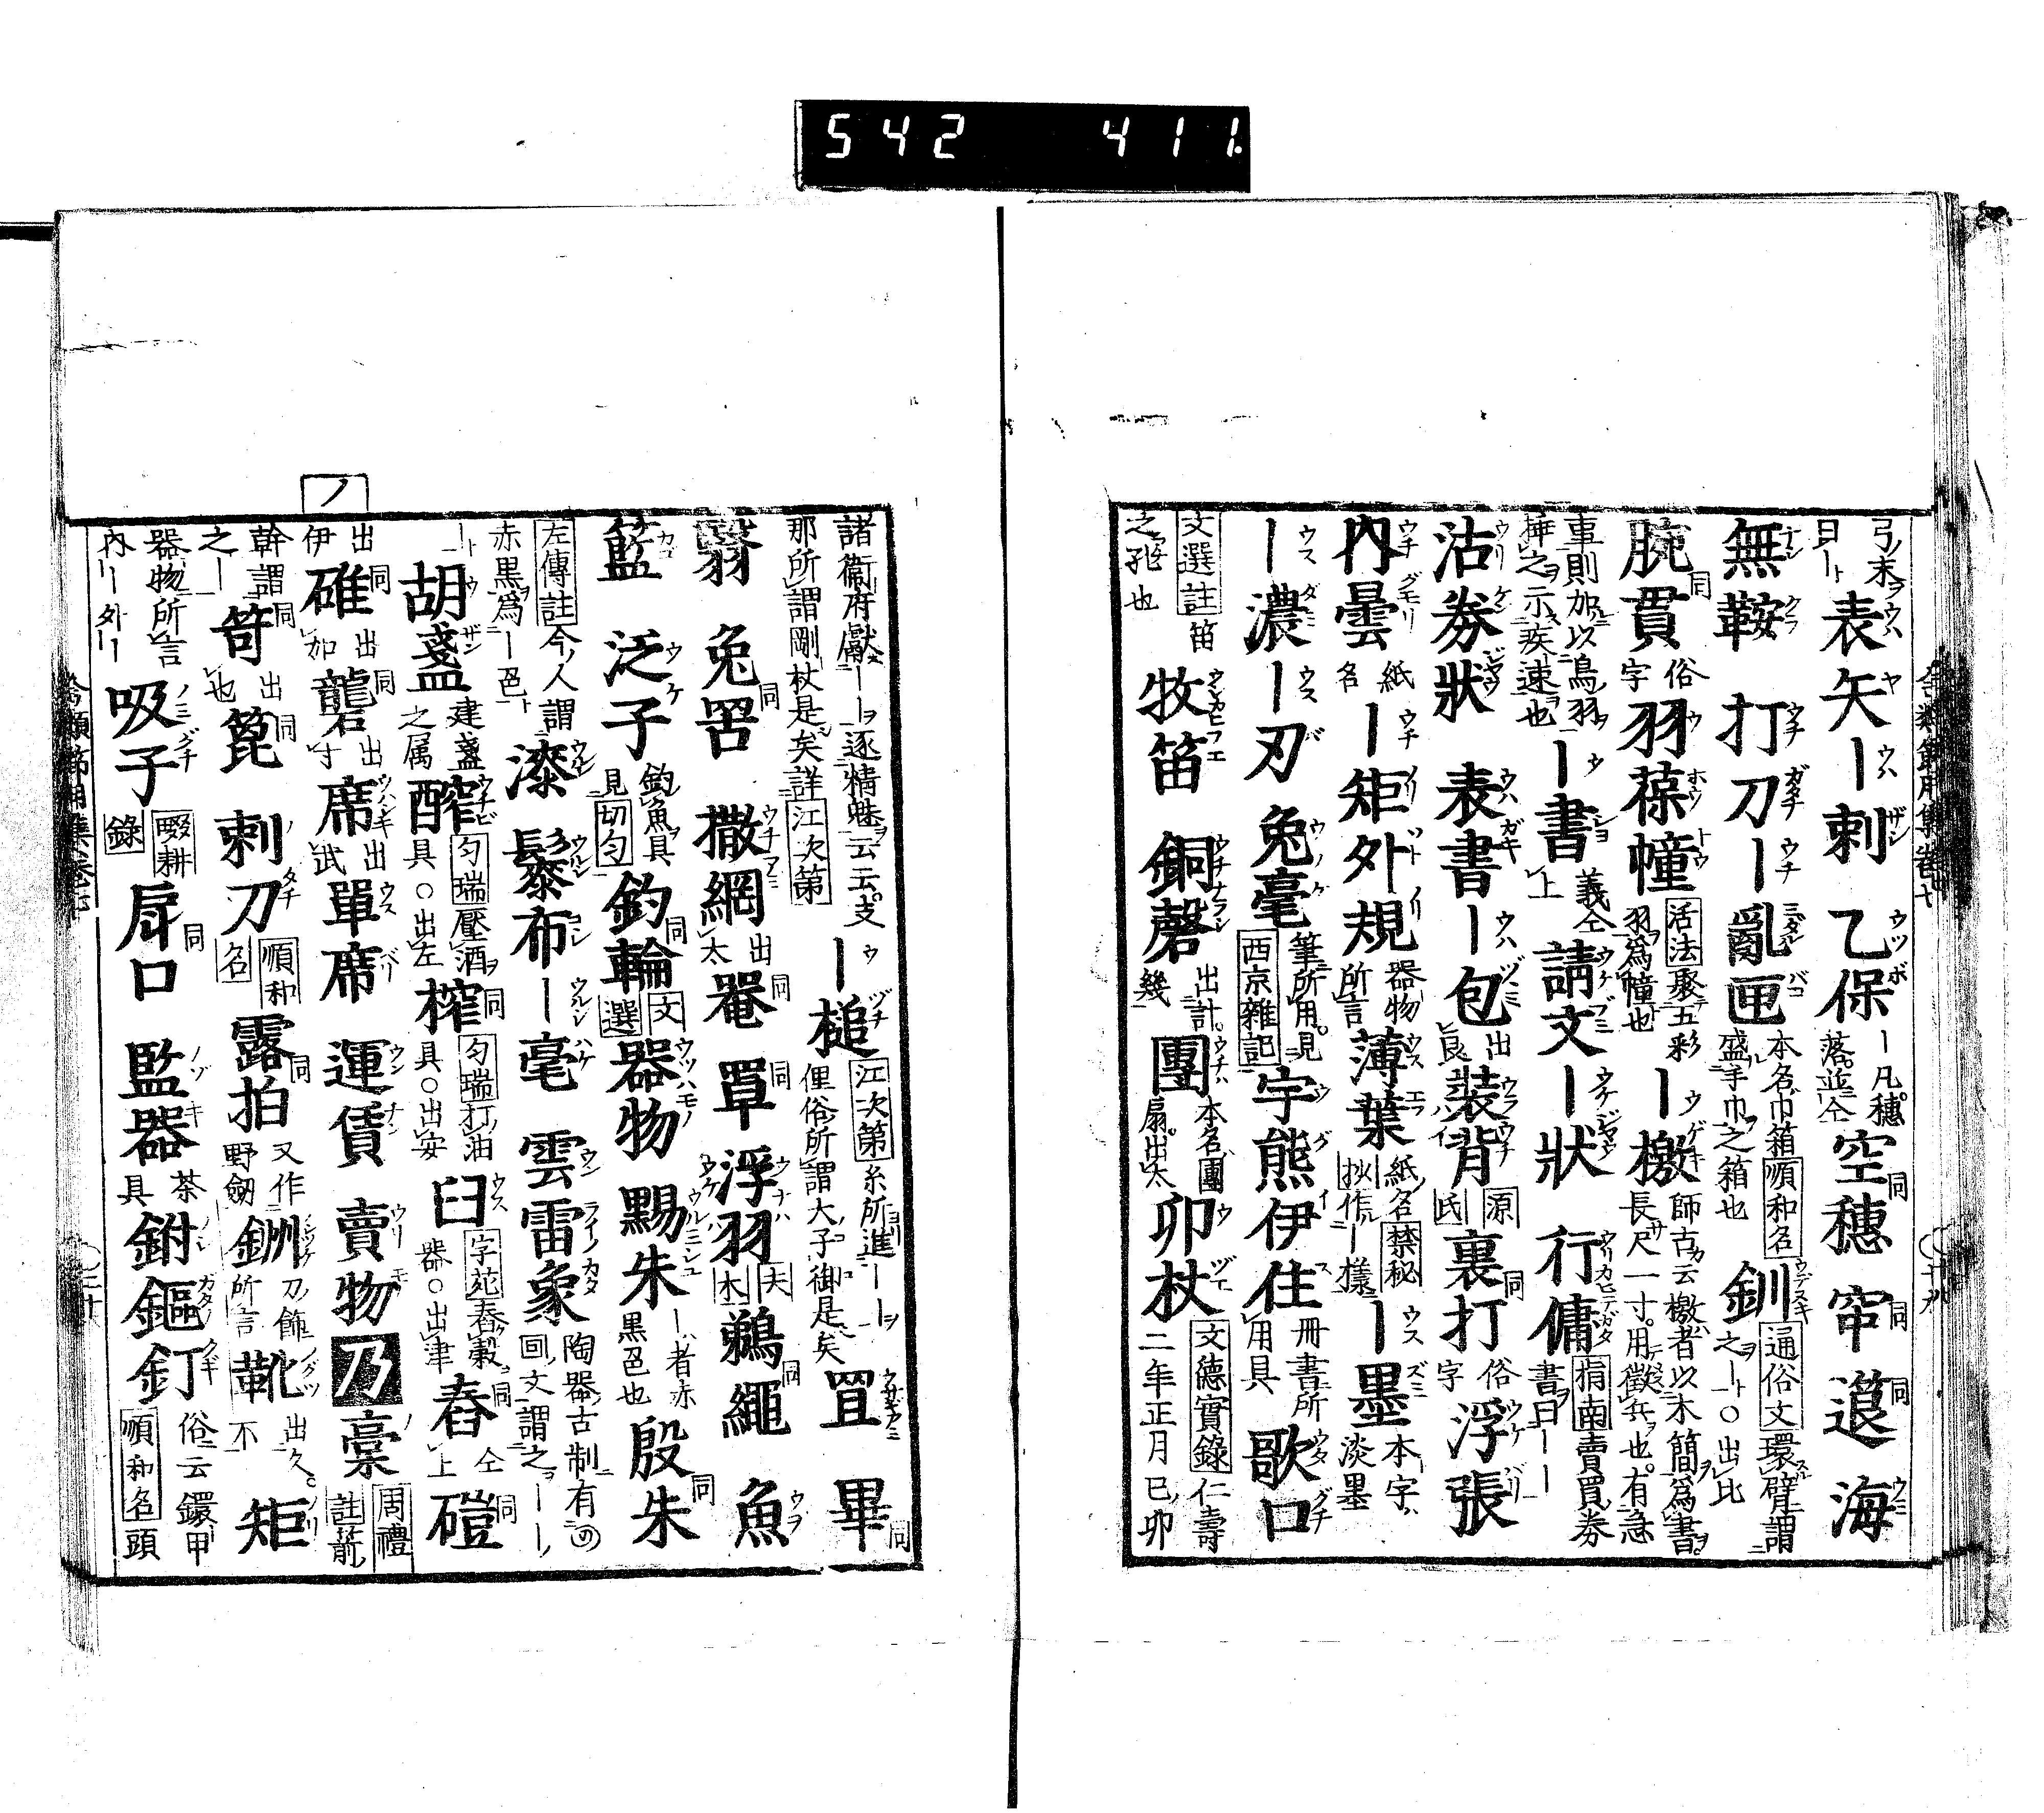 542 411.
弓末ヲ曰ト 表矢 ｜刺 乙保 ｜凡穗落並仝 空穗同 帘同 𨗉同 海
無鞍 打刀 ｜亂匣 本名巾箱順和名盛手巾之箱也 釧 通俗文環臂謂之｜○出比
腕貫同 俗字 羽葆幢 活法聚五彩羽爲幢也 ｜檄 師古云檄者以木簡爲書長尺一寸用徵兵也有急
事則加以鳥羽挿之示疾速也 ｜書 義仝上 請文 ｜狀 行傭 指南賣買券書曰｜｜
沽券狀 表書 ｜包 出良 装背 源氏 裏打同 俗字 浮張
内曇 紙名 ｜矩 外規 器物所言 薄葉 紙名禁秘抄作｜樣 ｜墨 本字淡墨
｜濃 ｜刃 兔毫 筆所用見西京雜記 宇熊伊住 冊書所用具 歌口
文選註笛之孔也 牧笛 銅磬 出計幾 團 本名團扇出太 卯杖 文德實錄仁壽二年正月己卯
諸衞府獻｜｜逐精魅云云支那所謂剛杖是矣詳江次第 ｜槌 江次第糸所進｜｜俚俗所謂大子御是矣 罝 畢同
翳 兔罟同 撒網 出太 罨同 罩同 浮羽 夫木 鵜繩同 魚
籃 泛子 釣魚具見切匀 釣輪同 文選 器物 賜朱 ｜者赤黒色也 殷朱同
左傳註今人謂赤黒爲｜色 漆 髹布 ｜毫 雲雷象 陶器古制有回文謂之｜｜
｜ト 胡盞 建盞之属 醡 匀瑞壓酒具○出左 榨同 匀瑞打油具○出安 臼 字苑舂穀器○出津 舂同 仝上 磑同
出伊 碓同 出加 礱同 出寸 席 出武 單席 運賃 賣物 乃 槀 周禮註箭
幹謂之｜ 笴同 出也 箆同 刺刀 順和名 露拍同 又作野劔 鉶 刀飾所言 靴 出久不 矩
器物所言内｜外｜ 吸子 輟耕錄 戽口同 監器 茶具 鉜鏂釘 俗云鐶甲順和名頭
ノ
合類節用集卷七 十九
合類節用集卷七 二十